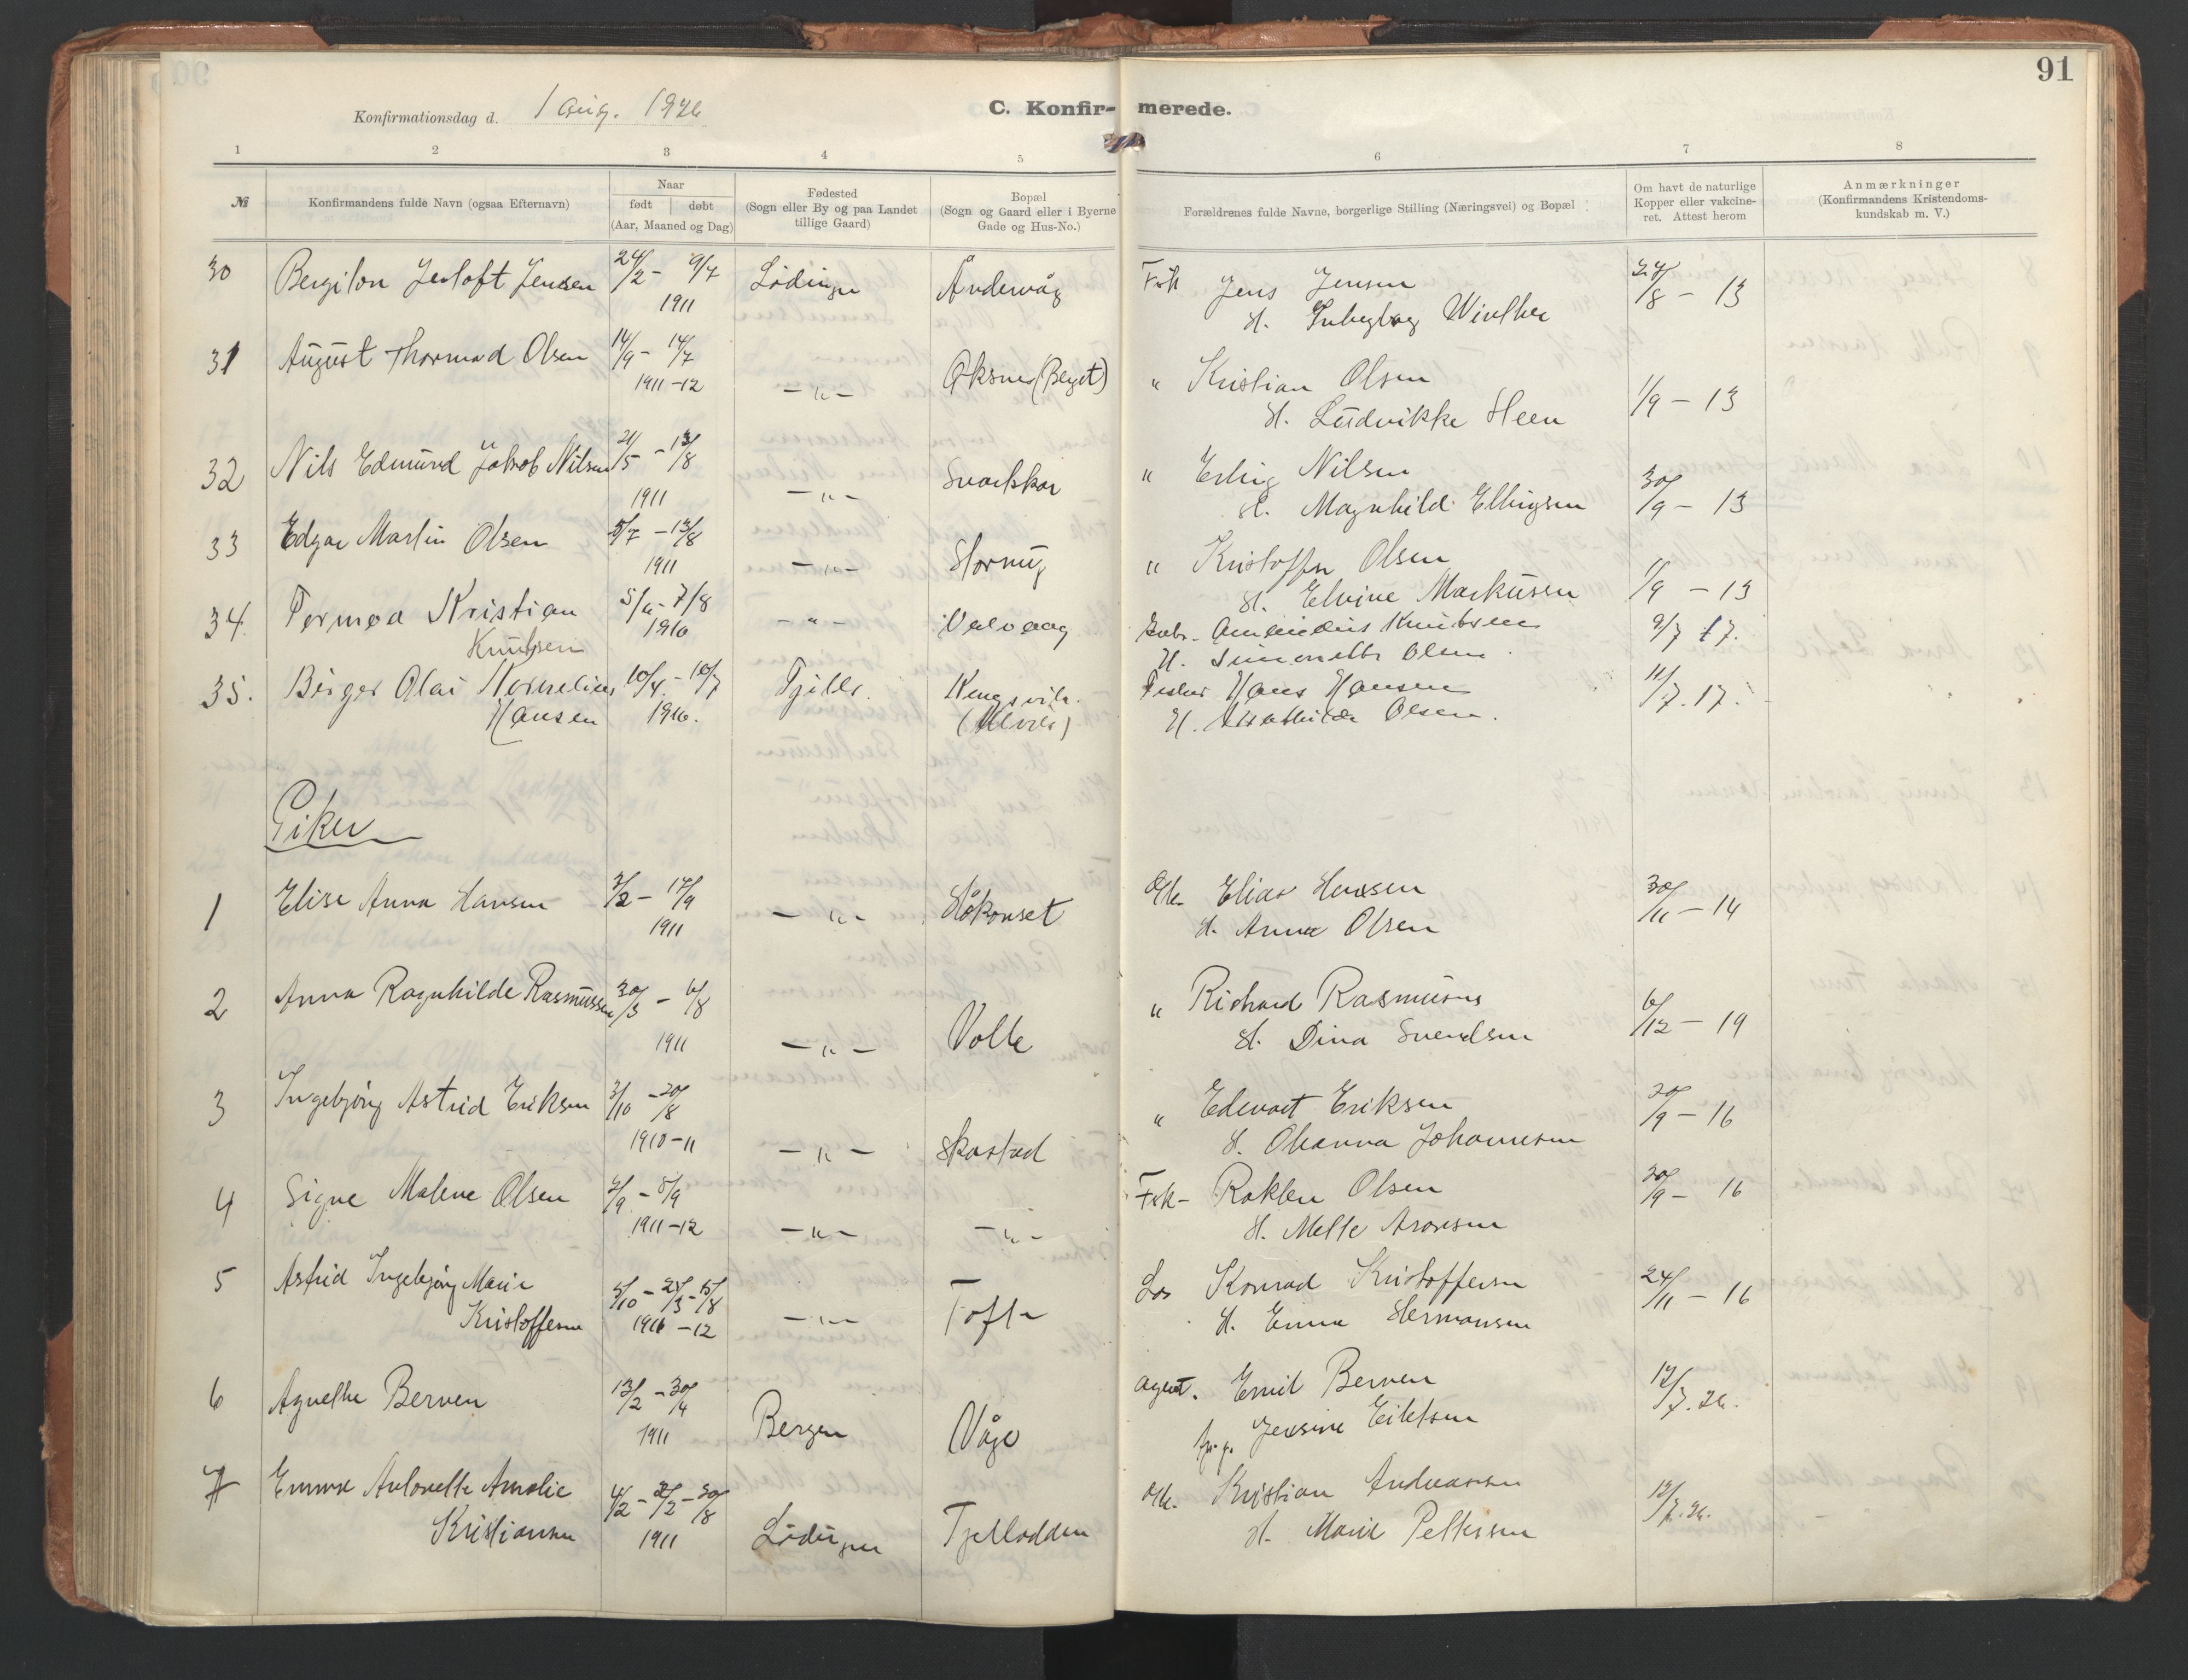 91
Konfirmationsdag d. 1 Aug. 1926
C. Konfirmerede.
1 2 3 4 5 6 7 8
№
Konfirmandens fulde Navn (ogsaa Efternavn)
Naar
født døbt
(Aar, Maaned og Dag)
Fødested
(Sogn eller By og paa Landet
tillige Gaard)
Bopæl
(Sogn og Gaard eller i Byerne
Gade og Hus-No.)
Forældrenes fulde Navne, borgerlige Stilling (Næringsvei) og Bopæl
Om havt de naturlige
Kopper eller vakcine-
ret. Attest herom
Anmærkninger
(Konfirmandens Kristendoms-
kundskab m. V.)
30 Jensen 24/2 - 9/7 Lødingen Åndervåg Fisk Jens Jensen 24/8 - 13
1911 H. Winther
31 August Thormod Olsen 14/9 - 14/7 -"- Øksnes (Berget) " Kristian Olsen 1/9 - 13
1911-12 H. Ludvikke Heen
32 Nils Edmund Jakob Nilsen 21/5 - 13/8 -"- Svartskar " Erling Nilsen 30/9 - 13
1911 H. Magnhild Ellingsen
33 Edgar Martin Olsen 5/7 - 13/8 -"- " Kristoffer Olsen 1/9 - 13
1911 H. Elvine Markusen
34. Tormod Kristian -"- Knutsen 9/7 17.
Knutsen 1910 H. Simonette Olsen
35. Birger Olai Kornelius 10/4 - 10/7 Tjeldø. Kongsvik. Fisker Hans Hansen 11/7. 17.
Hansen 1910. H. Olsen.
Piker
1 Elise Anna Hansen 3/2 - 17/9 -"- Håkonset Gbr. Elias Hansen 30/11 - 14
1911 H. Anna Olsen
2 Anna Ragnhilde Rasmussen 30/3 - 6/8 -"- Volle " Richard Rasmusen 6/12 - 19
1911 H. Dina Svendsen
3 Ingebjørg Astrid Eriksen 3/10 - 20/8 -"- Skarstad " Edevart Eriksen 20/9 - 16
1910-11 H. Ohanna Johannesen
4 Signe Malene Olsen -"- -"- Fisk - Olsen 30/9 - 16
1911-12 H. Mette Aronsen
5 Astrid Ingebjørg Marie -"- Tofte Los Konrad Kristoffersen 24/11 - 16
Kristoffersen H. Emma Hermansen
6 Agnethe Berven 13/2 - 30/4 Bergen Våge agent. Emil Berven 12/7. 26.
1911 Jensine Eilertsen
7 Emma Antonette Amalie Lødingen Tjellodden Gbr. Kristian Andreassen 12/7. 26.
Kristiansen 1911 H. Marie Pettersen